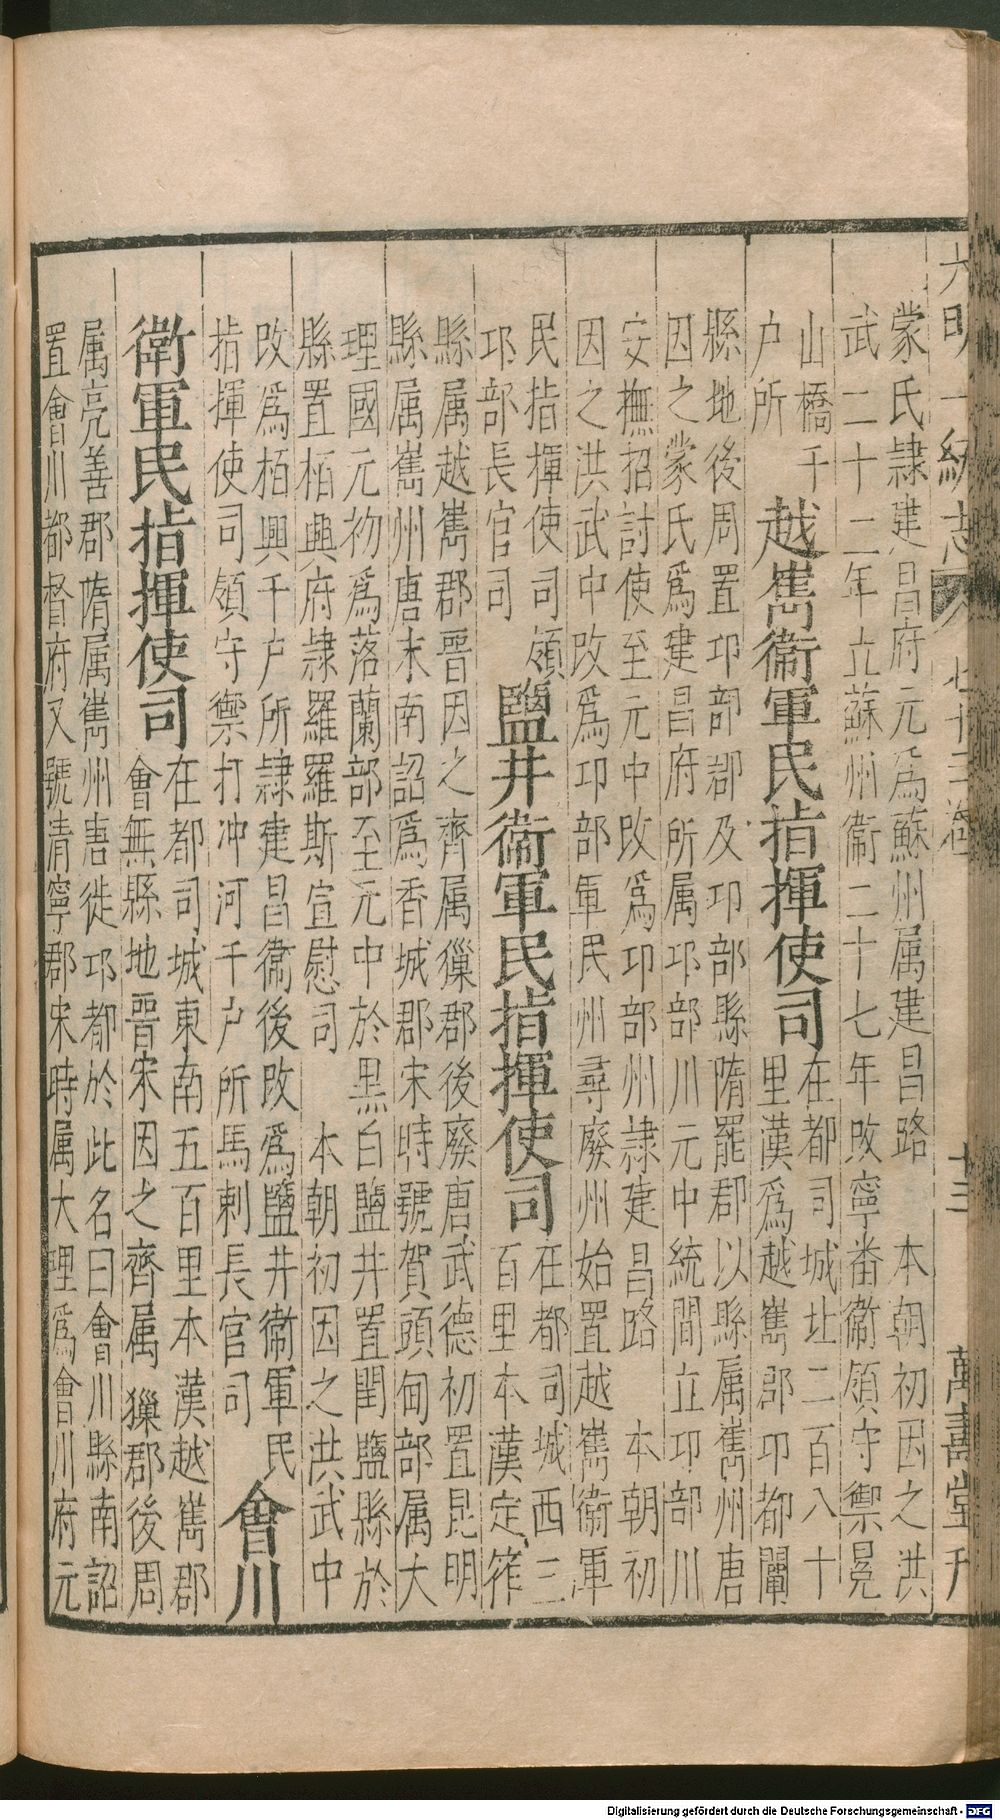 大明一統志 卷七十三 十三 萬壽堂刊
蒙氏隷建昌府元爲蘇州属建昌路 本朝初因之洪
武二十二年立蘇州衞二十七年改寧番衞領守禦冕
山橋千
户所
越嶲衞軍民指揮使司
在都司城北二百八十
里漢爲越嶲郡邛都闡
縣地後周置邛部郡及邛部縣隋罷郡以縣属嶲州唐
因之蒙氏爲建昌府所属邛部川元中統間立邛部川
安撫招討使至元中改爲邛部州隷建昌路 本朝初
因之洪武中改爲邛部軍民州尋廢州始置越嶲衞軍
民指揮使司領
邛部長官司
鹽井衞軍民指揮使司
在都司城西三
百里本漢定筰
縣属越嶲郡晉因之齊属獠郡後廢唐武德初置昆明
縣属嶲州唐末南詔爲香城郡宋時號賀頭甸部属大
理國元初爲落蘭部至元中於黑白鹽井置閏鹽縣於
縣置栢興府隷羅羅斯宣慰司 本朝初因之洪武中
改爲栢興千户所隷建昌衞後改爲鹽井衞軍民
指揮使司領守禦打冲河千户所馬剌長官司
會川
衞軍民指揮使司
在都司城東南五百里本漢越嶲郡
會無縣地晉宋因之齊属獠郡後周
属亮善郡隋属嶲州唐徙邛都於此名曰會川縣南詔
置會川都督府又號清寧郡宋時属大理爲會川府元
Digitalisierung gefördert durch die Deutsche Forschungsgemeinschaft - DFG